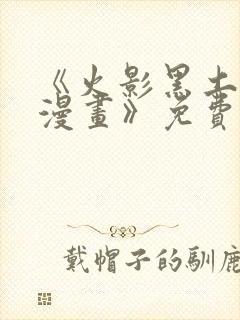 《火影黑土
漫畫》免費
戴帽子的馴鹿